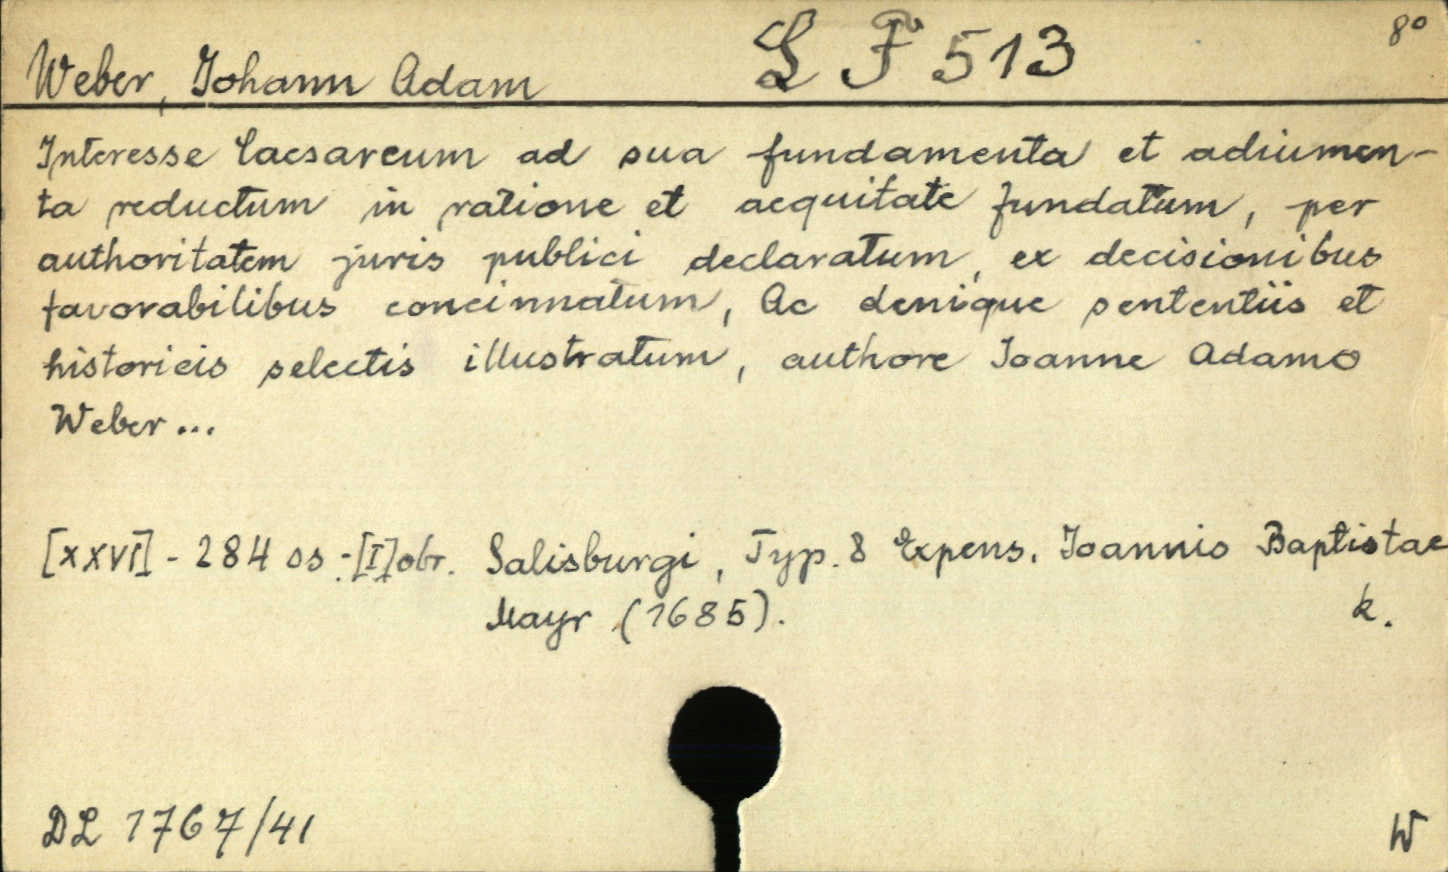 Weber, Johann Adam L F 513 8°
Interesse Caesareum ad sua fundamenta et adiumen-
ta reductum in ratione et aequitate fundatum, per
authoritatem juris publici declaratum, ex decisionibus
favorabilibus concinnatum, Ac denique sententiis et
historicis selectis illustratum, authore Joanne Adamo
Weber...
[XXVI] - 284 os. - [I] obr. Salisburgi, Typ. & Expens. Joannis Baptistae
Mayr (1685). k.
DL 1767/41 W